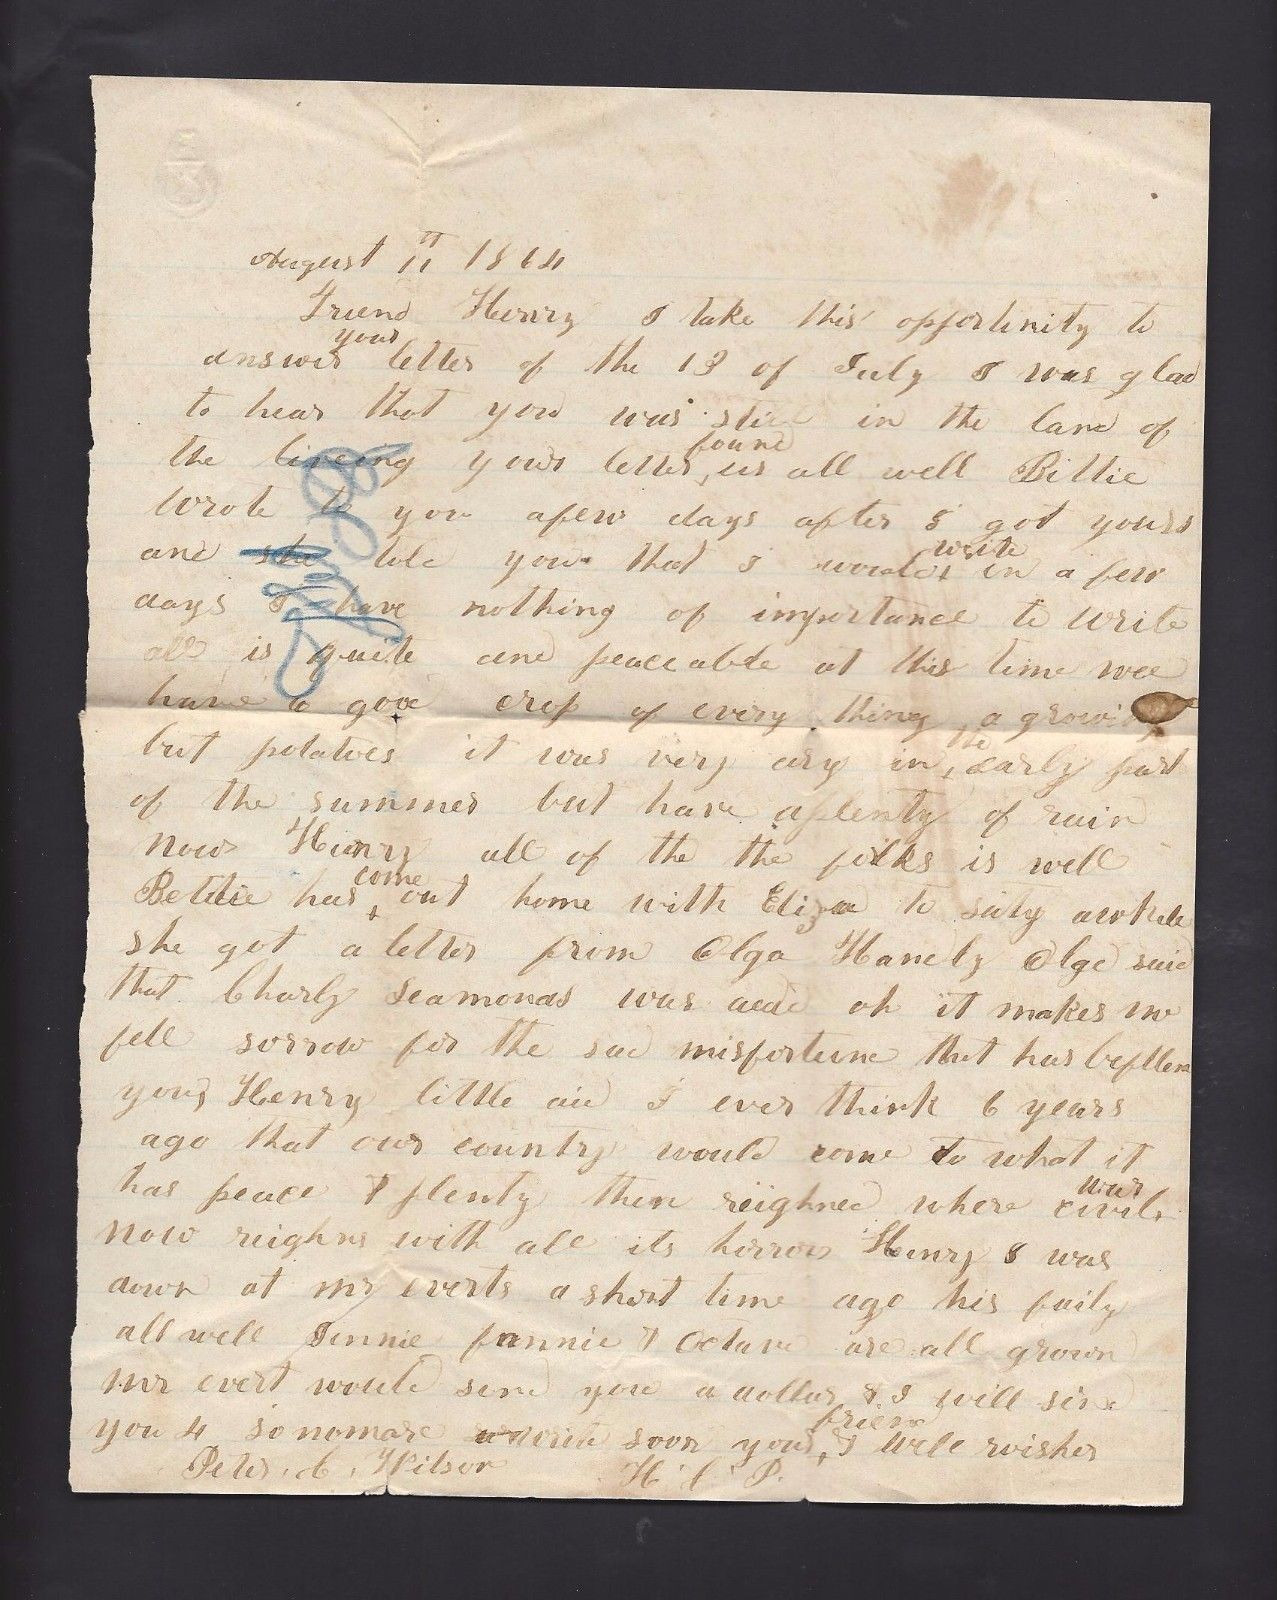 August 11th 1864
Friend Henry I take this opportinity to
your
answer letter of the 13 of July I was glad
to hear that you was still in the land of
found
the liveing your letter us all well Billie
wrote to you afew days after I got yours
write
and she told you that I would in a few
days I have nothing of importance to write
all is quite and peaceable at this time wee
have a good crop of every thing a growing
the
but potatoes it was very dry in early part
of the summer but have aplenty of rain
now Henry all of the the folks is well
come
Bettie has out home with Eliza to saty awhile
she got a letter from Olga Hanely Olge said
that Charly Seamonds was dead oh it makes me
fell sorrow for the sad misfortune that has
you Henry little did I ever think 6 years
ago that our country would come to what it
war
has peace & plenty then reighned where civil
now reighns with all its horrors Henry I was
down at mr everts a short time ago his faily
all well Jinnie fannie & Octave are all grown
mr evert would send you a dollar & I will sind
friend
you 4 so nomore write soon your & well wisher
Peter. C. Wilson H. C. P.